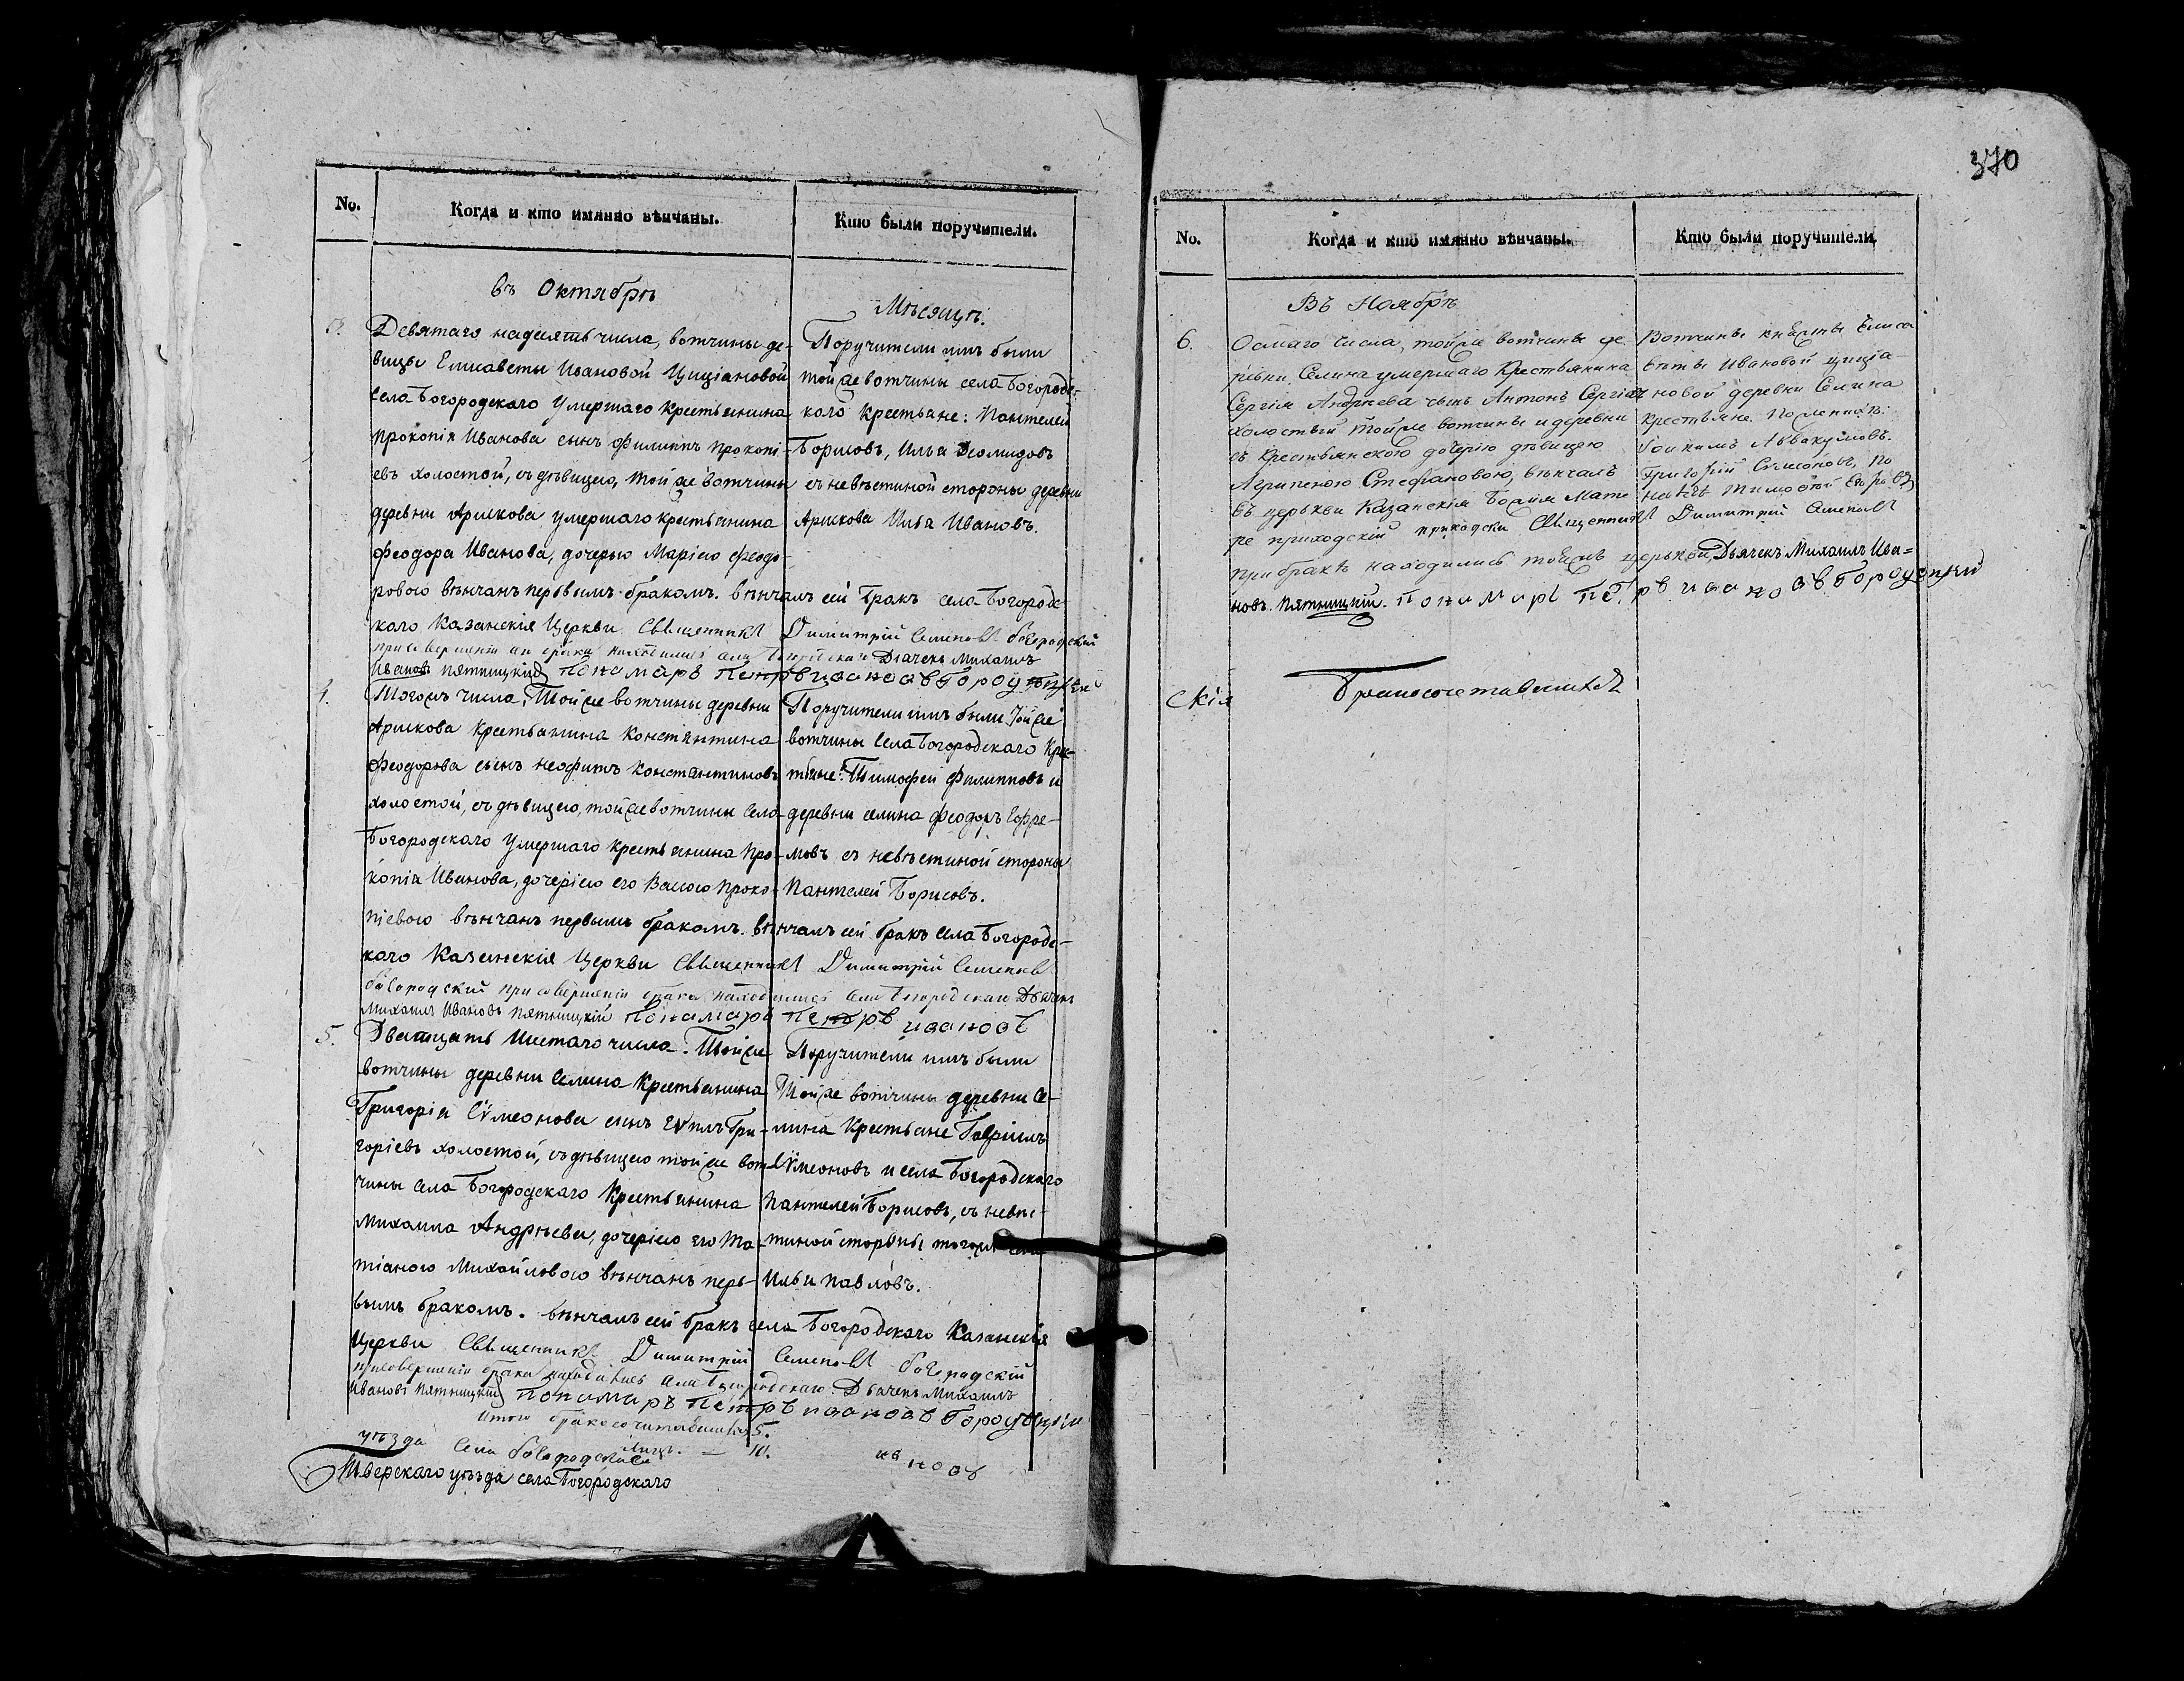 370
No.
Когда и кто имянно вѣнчаны.
Кто были поручители.
въ Октябрѣ
Мѣсяцѣ.
3.
Девятаго надесять числа, вотчины де-
вицы Елисаветы Ивановой Циціановой
села Богородскаго умершаго крестьянина
Прокопія Иванова сынъ Филиппъ Прокопі-
евъ холостой, съ дѣвицею, той же вотчины
деревни Арискова умершаго крестьянина
Феодора Иванова, дочерью Маріею Феодо-
ровою вѣнчанъ первымъ бракомъ. вѣнчалъ сей бракъ села Богородс-
каго Казанскія Церкви Священникъ Димитрій Семеновъ Богородскій
при совершеніи брака находились села Богородскаго Дьячекъ Михаилъ
Ивановъ Пятницкій пономарь петръ иванов
Поручители имъ были
той же вотчины села Богородс-
каго крестьяне: Пантелей
Борисовъ, Илья Деомидовъ
съ невѣстиной стороны деревни
Арискова Илья Ивановъ.
4.
Тогожъ числа, Той же вотчины деревни
Арискова крестьянина Константина
Феодорова сынъ Неофитъ Константиновъ
холостой, съ дѣвицею, той же вотчины села
Богородскаго умершаго крестьянина Про-
копія Иванова, дочеріею его Васою Проко-
піевою вѣнчанъ первымъ бракомъ. вѣнчалъ сей бракъ села Богородс-
каго Казанскія Церкви Священникъ Димитрій Семеновъ
Богородский при совершеніи брака находились села Богородскаго Дьячекъ
Михаилъ Ивановъ Пятницкій пономарь петръ ивановъ
Поручители имъ были Той же
вотчины села Богородскаго Крес-
тьяне: Тимофей Филипповъ и
деревни Селина Феодоръ Ефре-
мовъ съ невѣстиной стороны
Пантелей Борисовъ.
5.
Дватцать Шестаго числа. Той же
вотчины деревни Селина Крестьянина
Григорія Сѵмеонова сынъ Григоріевъ
холостой, съ дѣвицею той же вот-
чины села Богородскаго Крестьянина
Михаила Андрѣева, дочеріею его Та-
тіаною Михайловою вѣнчанъ пер-
вымъ бракомъ. вѣнчалъ сей бракъ села Богородскаго Казанскія
Церкви Священникъ Димитрій Семеновъ Богородскій
при совершеніи брака находились села Богородскаго Дьячекъ Михаилъ
Ивановъ Пятницкій пономаръ петръ ивановъ
Поручители имъ были
Той же вотчины деревни Се-
лина Крестьяне Гавріилъ
Сѵмеоновъ и села Богородскаго
Пантелей Борисовъ, съ невѣс-
тиной стороны тогожъ села
Илья Павловъ.
Итого бракосочитавшихся 5.
Лицъ. — 10.
уѣзда Села Богородскаго
ивановъ
Тверскаго уѣзда села Богородскаго
No.
Когда и кто имянно вѣнчаны.
Кто были поручители.
Въ Ноябрѣ
6.
Осмаго числа, той же вотчины де-
ревни Селина умершаго Крестьянина
Сергія Андрѣева сынъ Антонъ Сергіевъ
холостый той же вотчины и деревни
съ крестьянскою дочерію дѣвицею
Агрипеною Стефановою, вѣнчалъ
въ церькви Казанскія Божія Мате-
ре приходскій Священникъ Димитрій Семеновъ
при бракѣ находились тоежъ церькви, Дьячекъ Михаилъ Ива=
новъ Пятницкій. пономарь петръ иванов
Вотчины княжны Елиса
веты Ивановой Циціа-
новой деревни Селина
крестьяне. По женихѣ
Іоакимъ Аввакумовъ.
Григорій Сѵмеоновъ, по
невѣстѣ Тимофей
скія